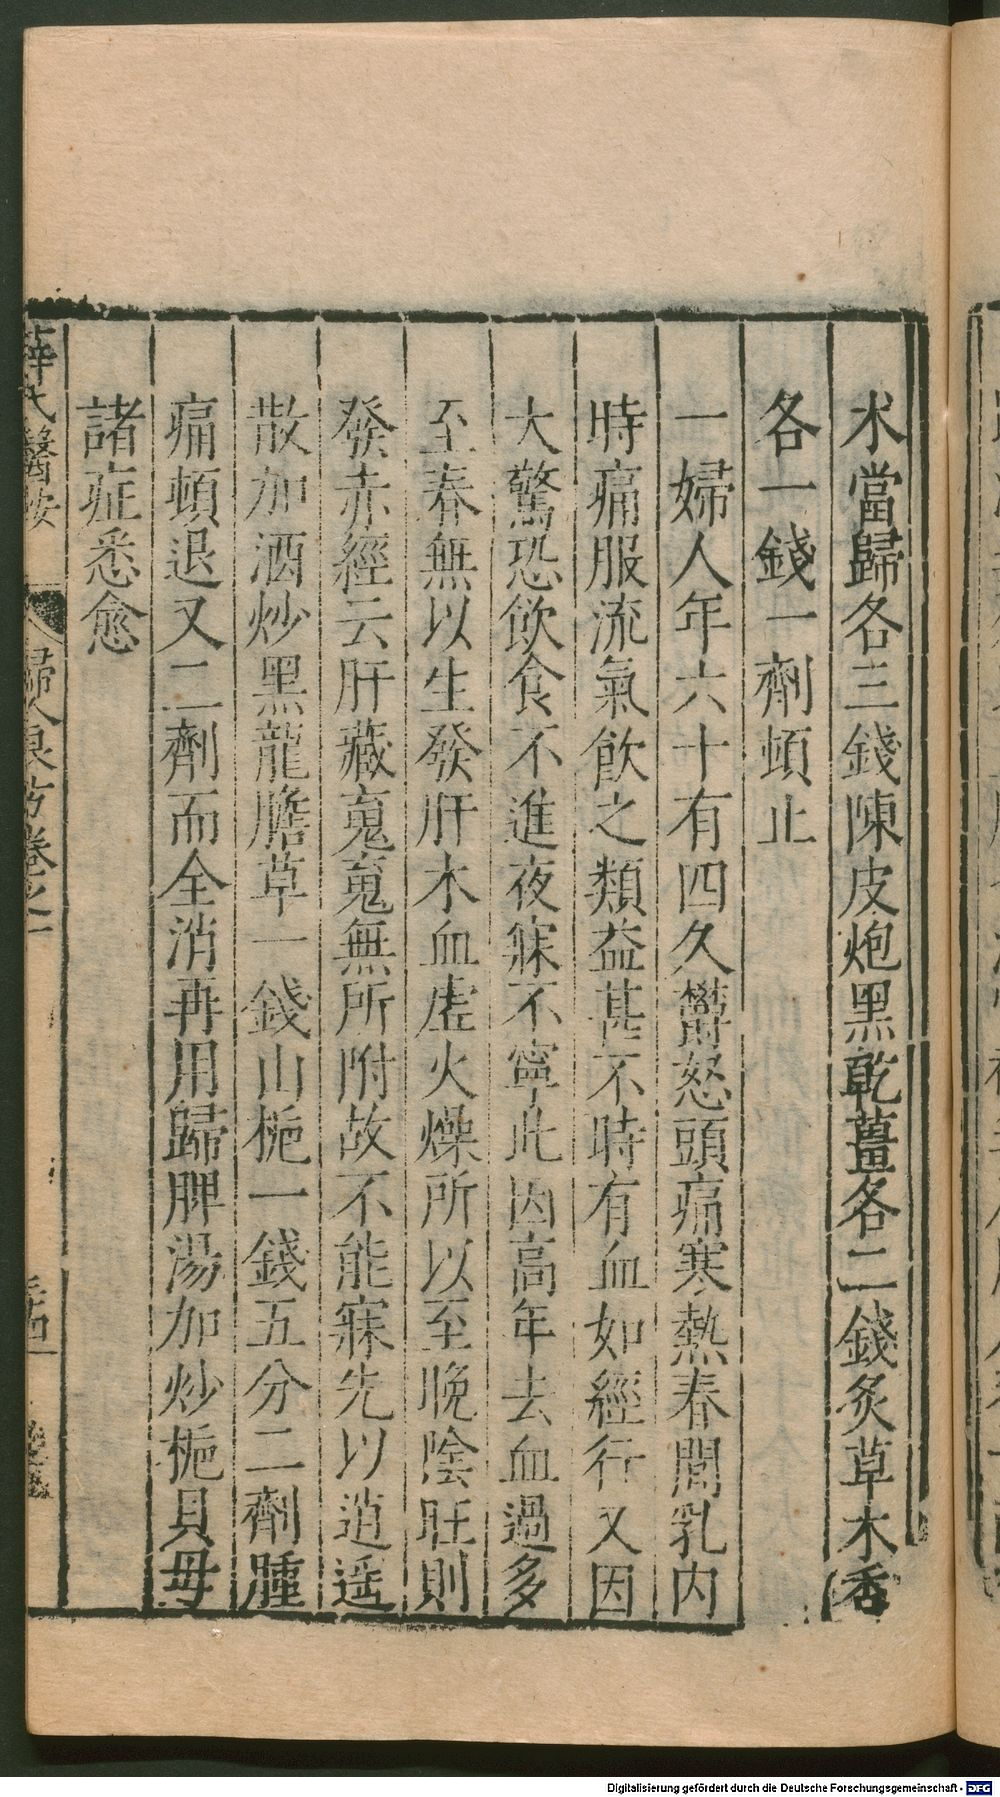 朮當歸各三錢陳皮炮黑乾薑各二錢炙草木香
各一錢一劑頓止
一婦人年六十有四久鬱怒頭痛寒熱春間乳内
時痛服流氣飲之類益甚不時有血如經行又因
大驚恐飲食不進夜寐不寧此因高年去血過多
至春無以生發肝木血虛火燥所以至晚陰旺則
發赤經云肝藏䰟䰟無所附故不能寐先以逍遥
散加酒炒黑龍膽草一錢山梔一錢五分二劑腫
痛頓退又二劑而全消再用歸脾湯加炒梔貝母
諸症悉愈
薛氏醫按
婦人良方卷之
Digitalisierung gefördert durch die Deutsche Forschungsgemeinschaft - DFG